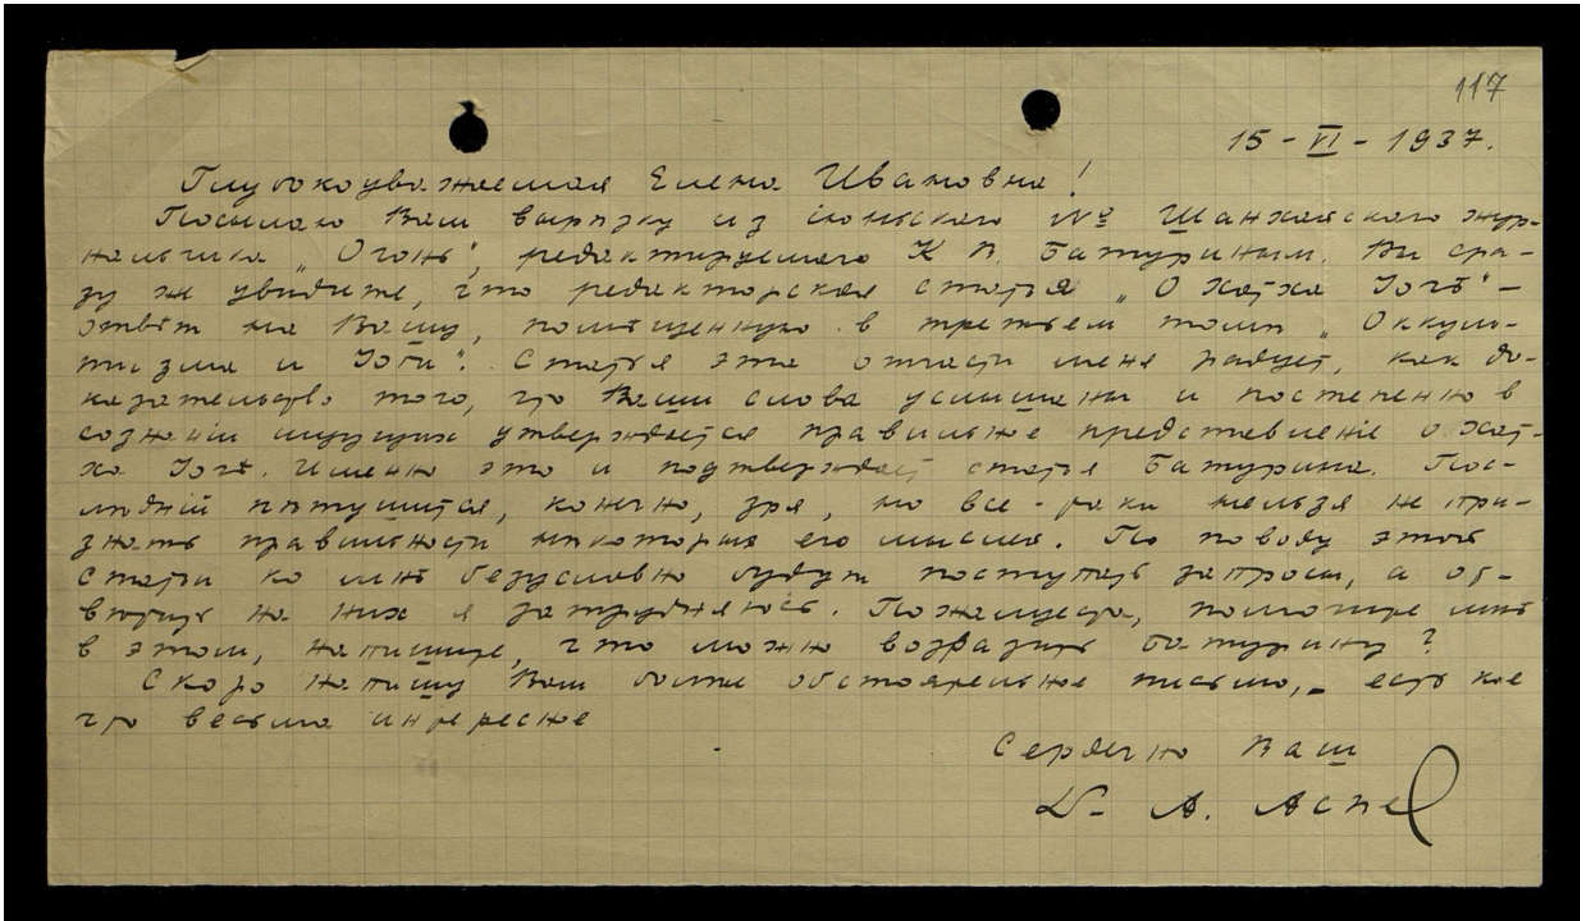 117
15 - VI - 1937.
Глубокоуважаемая Елена Ивановна!
Посылаю Вам вырѣзку из іюньскаго № Шанхайскаго жур-
нальчика „Огонь", редактируемаго К. В. Батуриным. Вы сра-
зу же увидите, что редакторская статья „О Хатха Іогѣ" –
отвѣт на Вашу, помѣщенную в третьем томѣ „Оккуль-
тизма и Іоги". Статья эта отчасти меня радует, как до-
казательство того, что Ваши слова услышаны и постепенно в
сознаніи ищущих утверждается правильное представленіе о Хат-
ха Іогѣ. Именно это и подтверждает статья Батурина. Пос-
лѣдній пѣтушится, конечно, зря, но все-таки нельзя не при-
знать правильности нѣкоторых его мыслей. По поводу этой
статьи ко мнѣ безусловно будут поступать запросы, а от-
вѣтить на них я затрудняюсь. Пожалуйста, помогите мнѣ
в этом, напишите, что можно возразить Батурину?
Скоро напишу Вам болѣе обстоятельное письмо, – есть кое
что весьма интересное
Сердечно Ваш
Dr А. Асее